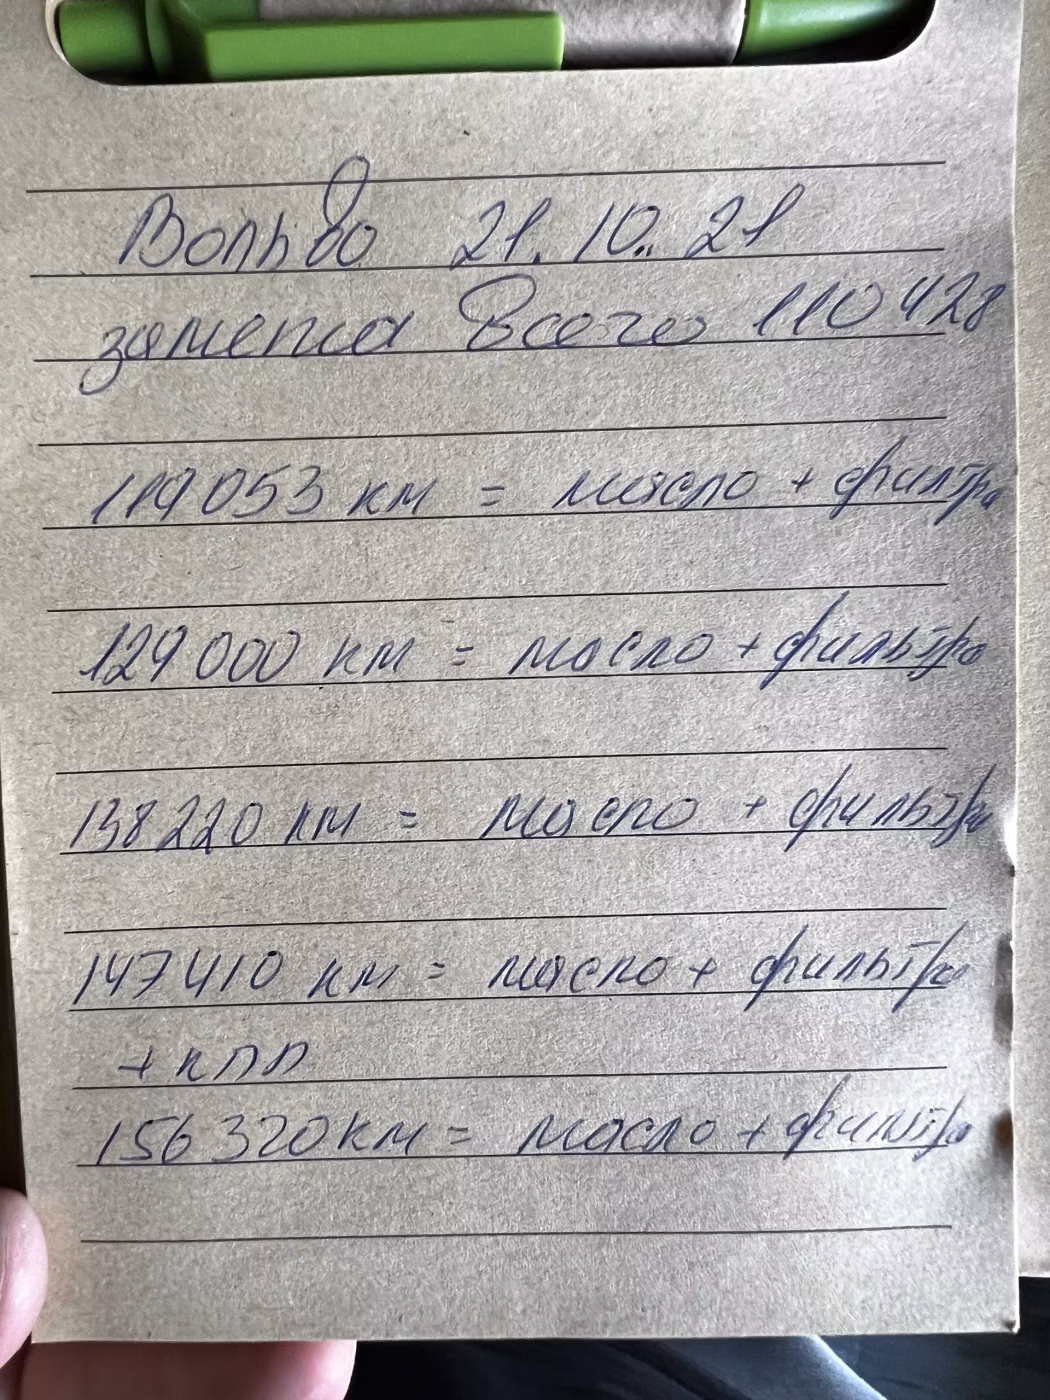 Вольво 21.10.21
замена всего 110428
119053 км = масло + фильтра
129000 км = масло + фильтра
138220 км = масло + фильтра
147410 км = масло + фильтра
+ КПП
156320 км = масло + фильтра